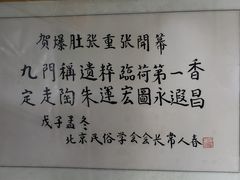 贺爆肚张重张開幕
九門稱遗粹臨荷第一香
定走陶朱運宏圖永遐昌
戊子孟冬
北京民俗学会会长常人春